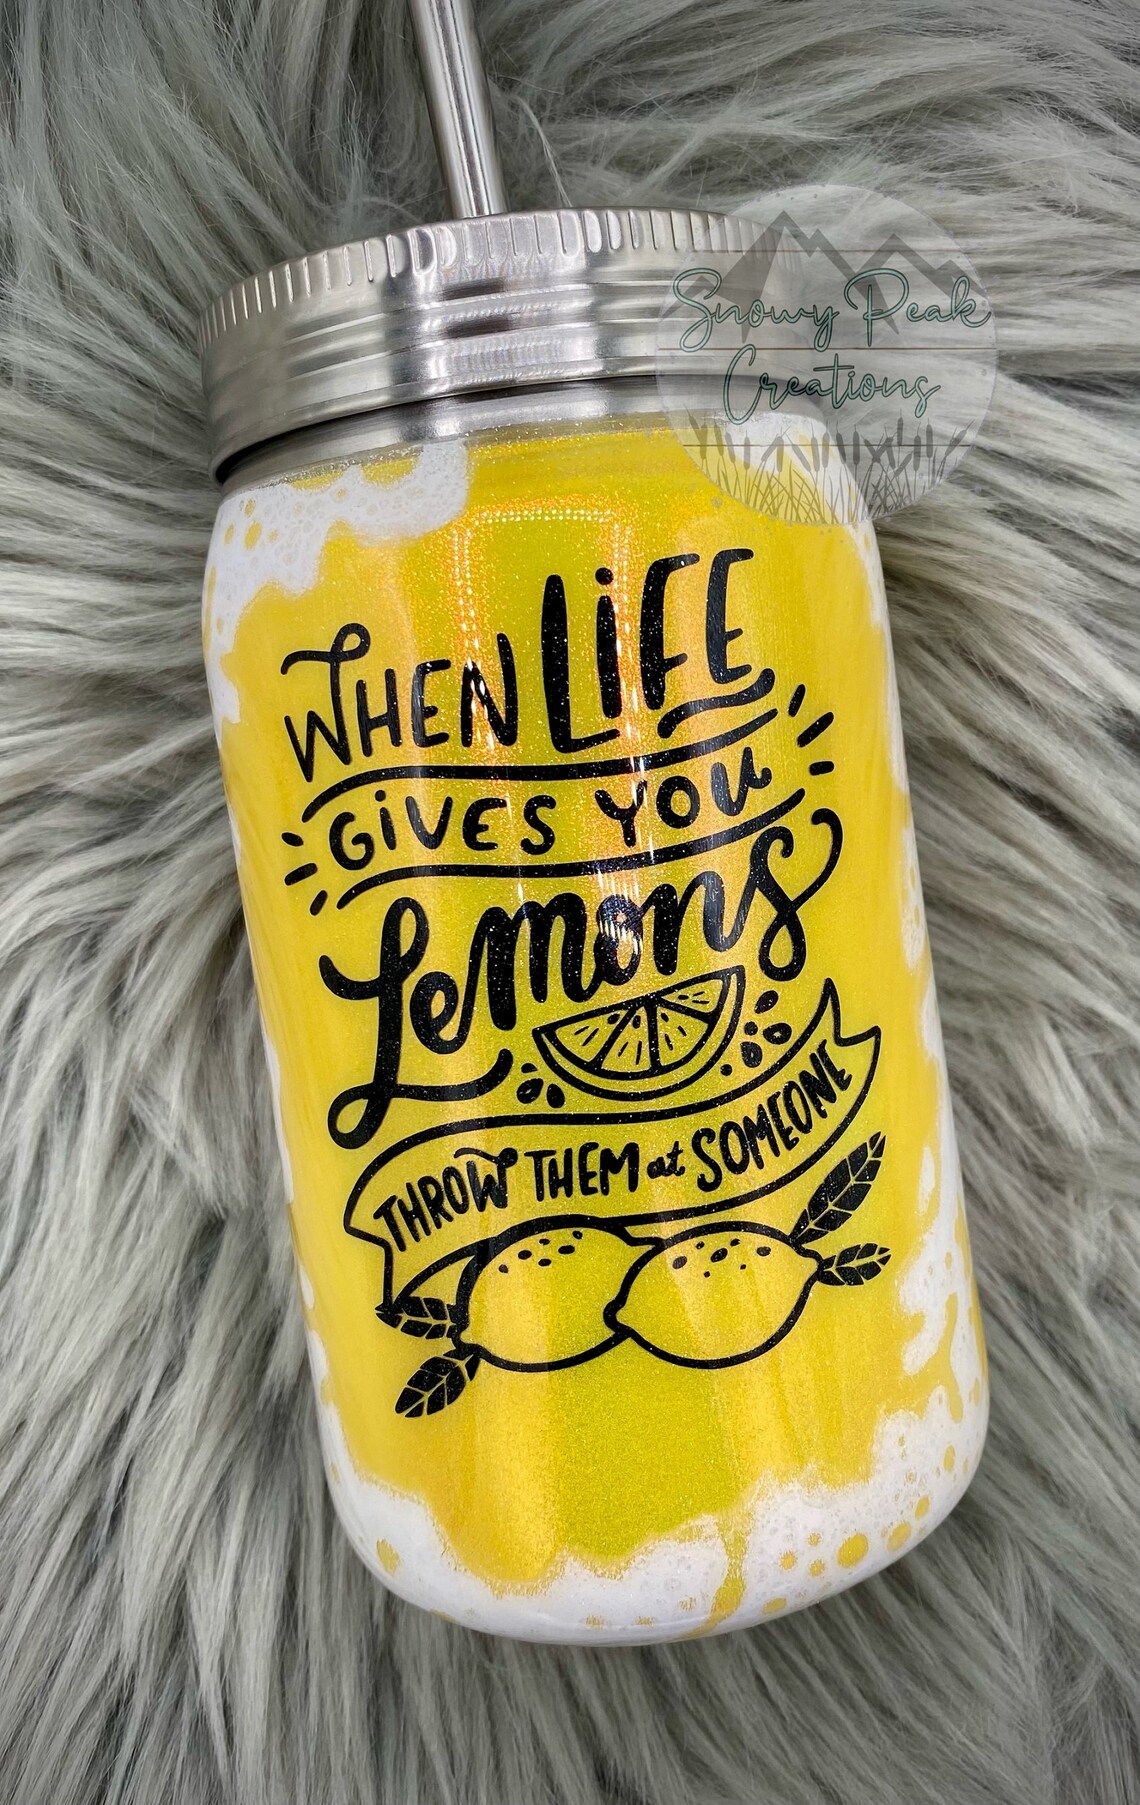 Snowy Peak
Creations
WHEN LiFE
GiVES YOU
Lemons
THROW THEM at SOMEONE